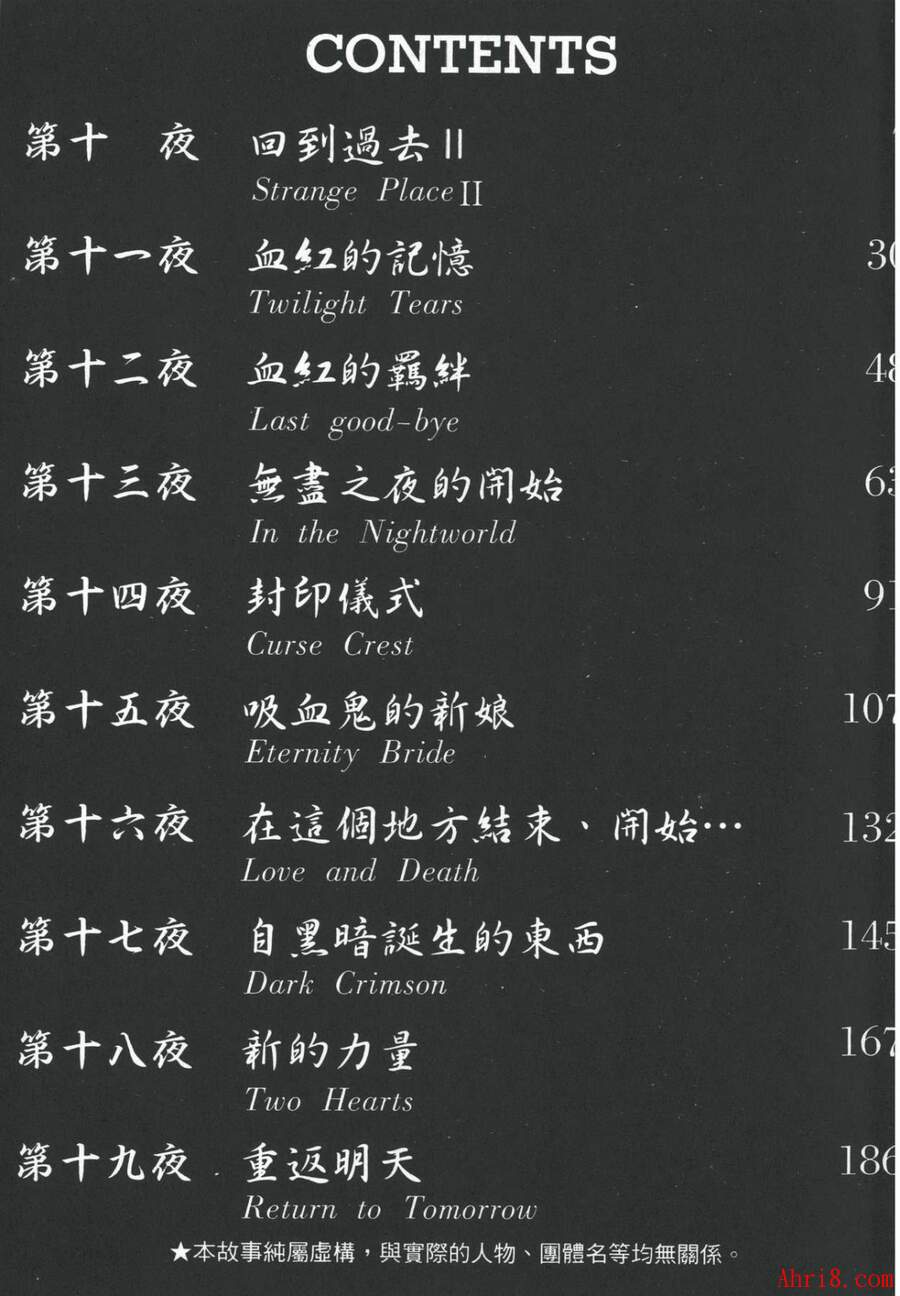 CONTENTS
第十　夜 回到過去II
Strange Place II
第十一夜 血紅的記憶 30
Twilight Tears
第十二夜 血紅的羈絆 48
Last good-bye
第十三夜 無盡之夜的開始 63
In the Nightworld
第十四夜 封印儀式 91
Curse Crest
第十五夜 吸血鬼的新娘 107
Eternity Bride
第十六夜 在這個地方結束、開始… 132
Love and Death
第十七夜 自黑暗誕生的東西 145
Dark Crimson
第十八夜 新的力量 167
Two Hearts
第十九夜 重返明天 186
Return to Tomorrow
★本故事純屬虛構，與實際的人物、團體名等均無關係。
Ahri8.com